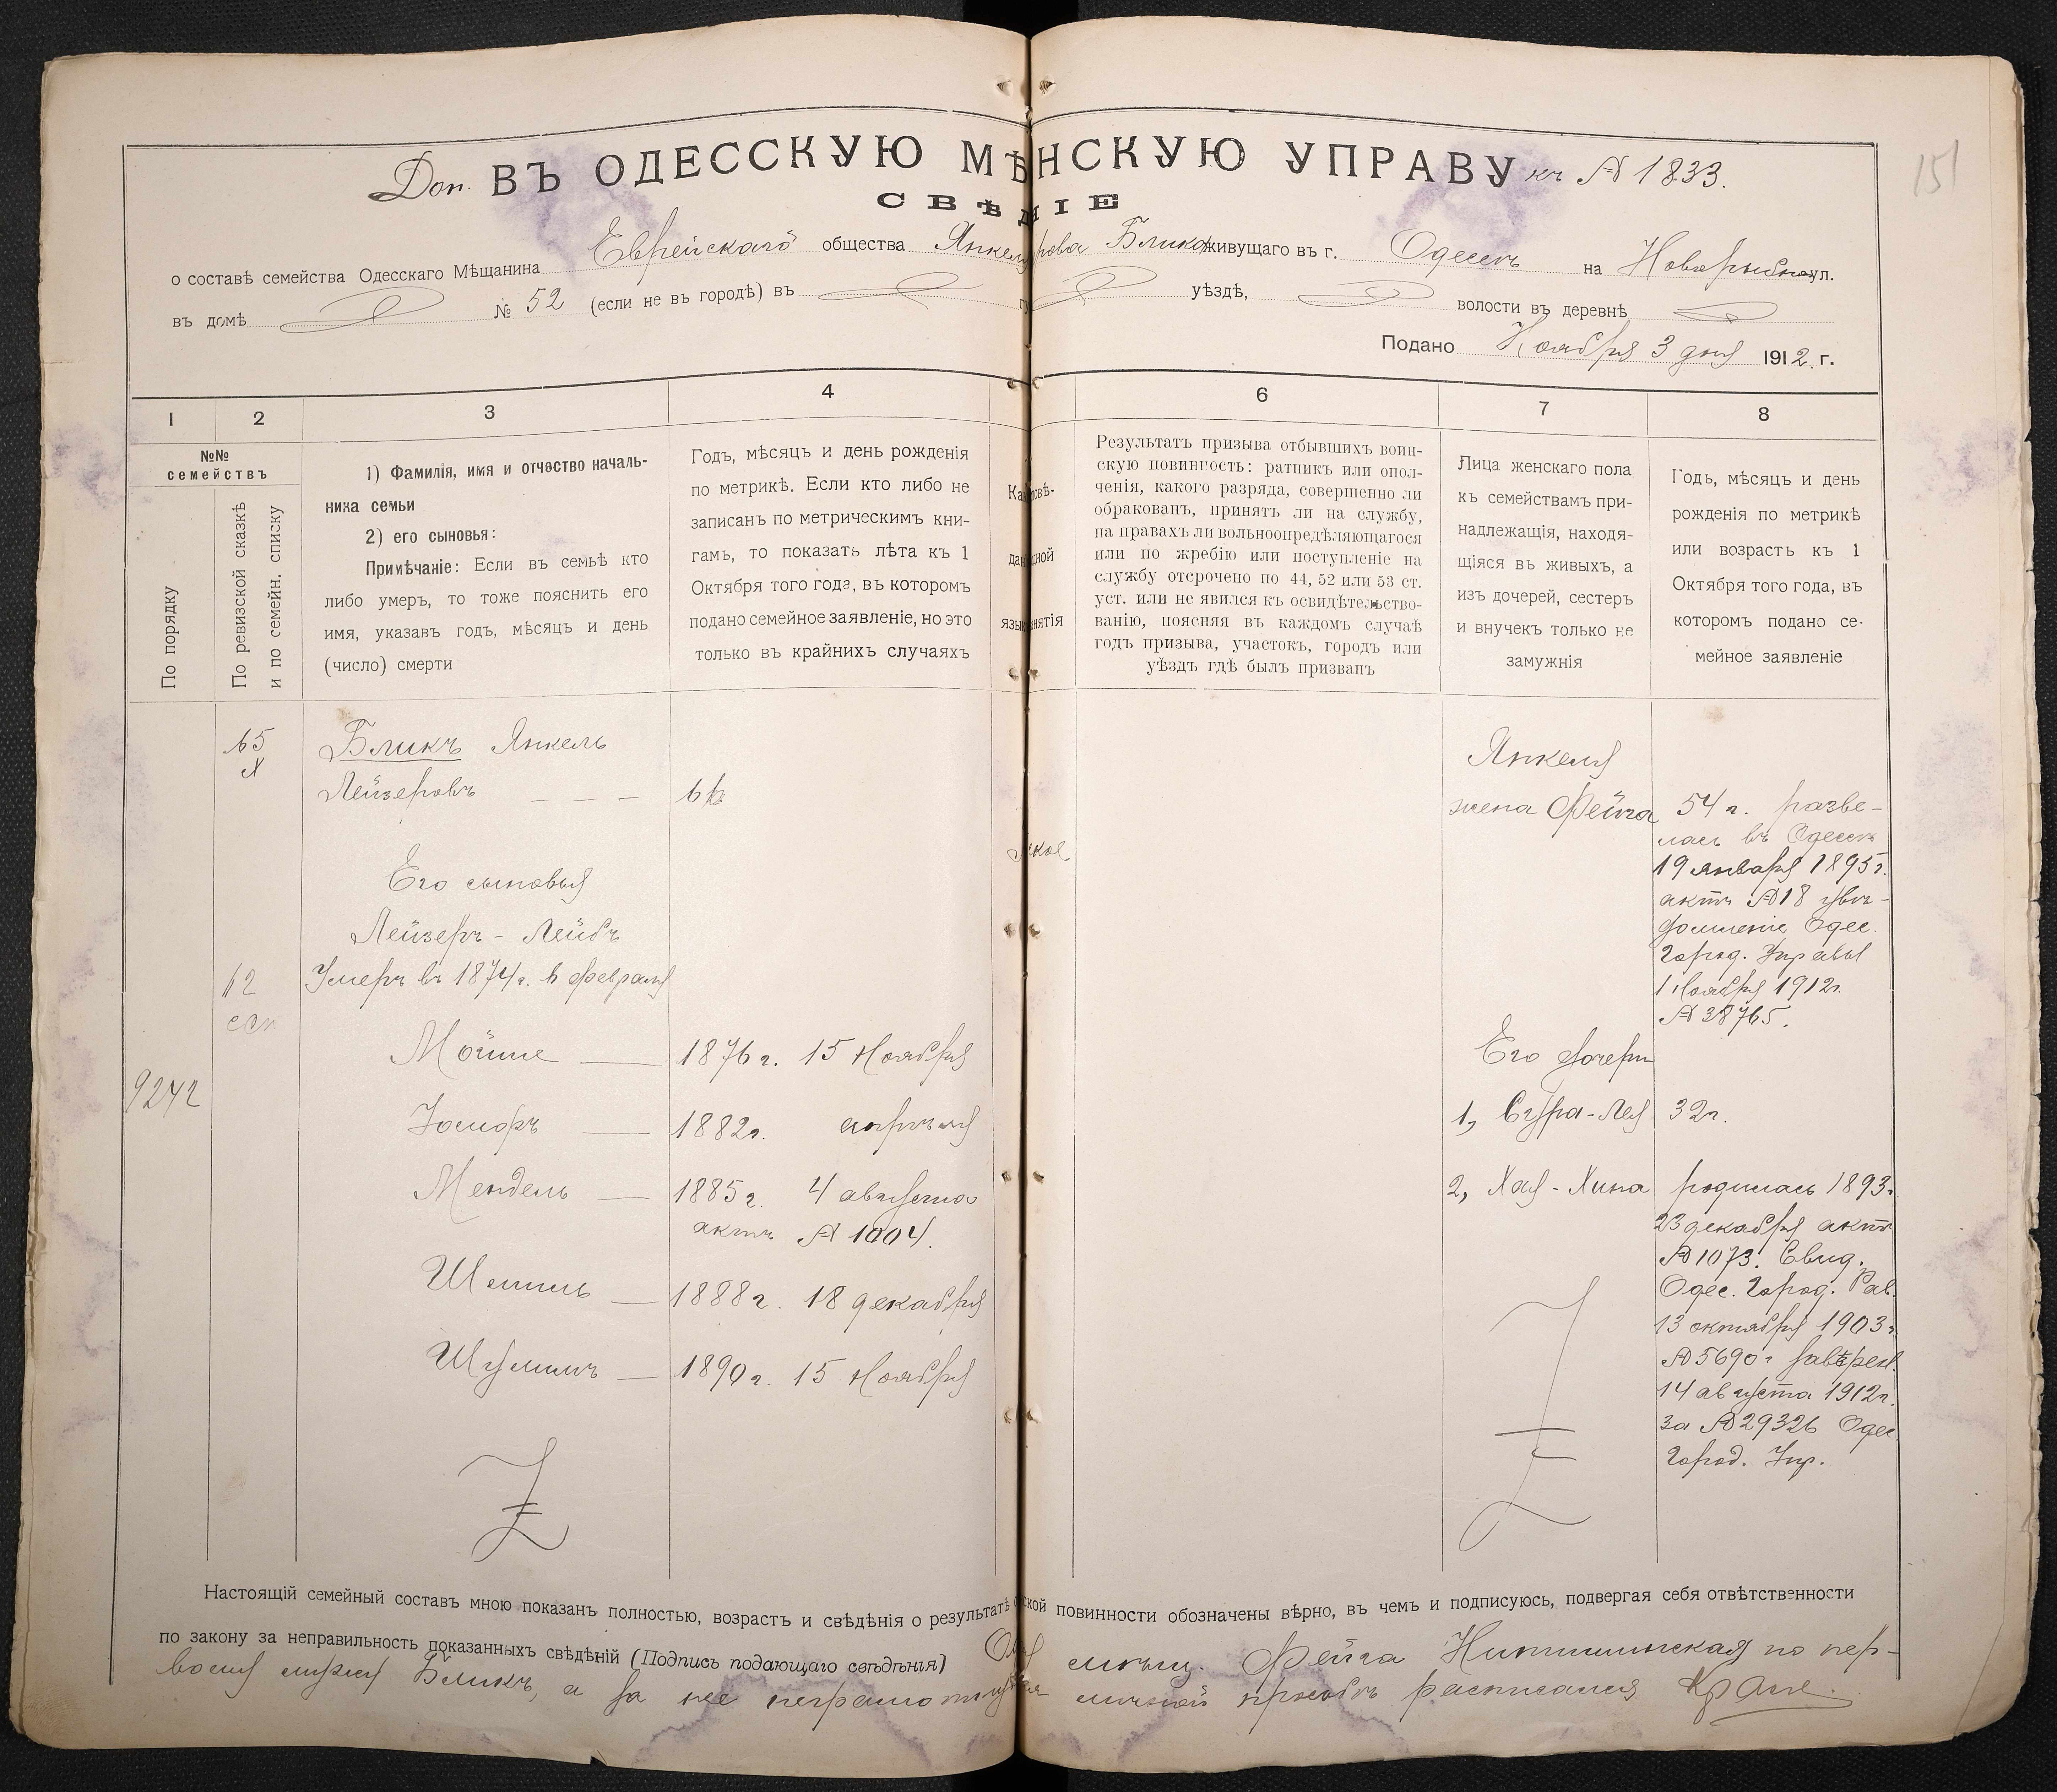 Доп. ВЪ ОДЕССКУЮ МѢНСКУЮ УПРАВУ къ № 1833.
151
СВѢ НІЕ
о составѣ семейства Одесскаго Мѣщанина Еврейскаго общества Янкеля Блика живущаго въ г. Одессѣ на Новорыбной ул.
въ домѣ № 52 (если не въ городѣ) въ уѣздѣ, волости въ деревнѣ
Подано Ноября 3 дня 1912 г.
1 2 3 4 6 7 8
№№ семействъ
По порядку
По ревизской сказкѣ
и по семейн. списку
1) Фамилія, имя и отчество началь-
ника семьи
2) его сыновья:
Примѣчаніе: Если въ семьѣ кто
либо умеръ, то тоже пояснить его
имя, указавъ годъ, мѣсяцъ и день
(число) смерти
Годъ, мѣсяцъ и день рожденія
по метрикѣ. Если кто либо не
записанъ по метрическимъ кни-
гамъ, то показать лѣта къ 1
Октября того года, въ которомъ
подано семейное заявленіе, но это
только въ крайнихъ случаяхъ
Результатъ призыва отбывшихъ воин-
скую повинность: ратникъ или опол-
ченія, какого разряда, совершенно ли
обракованъ, принятъ ли на службу,
на правахъ ли вольноопредѣляющагося
или по жребію или поступленіе на
службу отсрочено по 44, 52 или 53 ст.
уст. или не явился къ освидѣтельство-
ванію, поясняя въ каждомъ случаѣ
годъ призыва, участокъ, городъ или
уѣздъ гдѣ былъ призванъ
Лица женскаго пола
къ семействамъ при-
надлежащія, находя-
щіяся въ живыхъ, а
изъ дочерей, сестеръ
и внучекъ только не
замужнія
Годъ, мѣсяцъ и день
рожденія по метрикѣ
или возрастъ къ 1
Октября того года, въ
которомъ подано се-
мейное заявленіе
65
Бликъ Янкель
Лейзеровъ — — — 66
Его сыновья
Лейзеръ - Лейбъ
Умеръ въ 1874 г. въ февралѣ
62
Мойше — 1876 г. 15 Ноября
9242
Юсиоръ — 1882 г. апрѣля
Мендель — 1885 г. 4 августа
актъ № 1004.
Шмиль — 1888 г. 18 декабря
Шулимъ — 1890 г. 15 Ноября
Янкеля
жена Фейга 54 г. разве-
лась въ Одессѣ
19 января 1895 г.
актъ № 18 увѣ-
домленіе Одес.
Город. Управы
1 Ноября 1912 г.
№ 38765.
Его дочери
1, Сура-Лея 32 г.
2, Хая-Хина родилась 1893 г.
23 декабря актъ
№ 1073. Свид.
Одес. Город. Рав.
13 октября 1903 г.
№ 5690 г завѣрен.
14 августа 1912 г.
за № 29326 Одес.
Город. Упр.
Настоящій семейный составъ мною показанъ полностью, возрастъ и свѣдѣнія о результатѣ ской повинности обозначены вѣрно, въ чемъ и подписуюсь, подвергая себя отвѣтственности
по закону за неправильность показанныхъ свѣдѣній (Подпись подающаго свѣдѣнія) мѣщ. Фейга по пер-
вому мужу Бликъ, а за нее неграмотную личной просьбѣ расписался